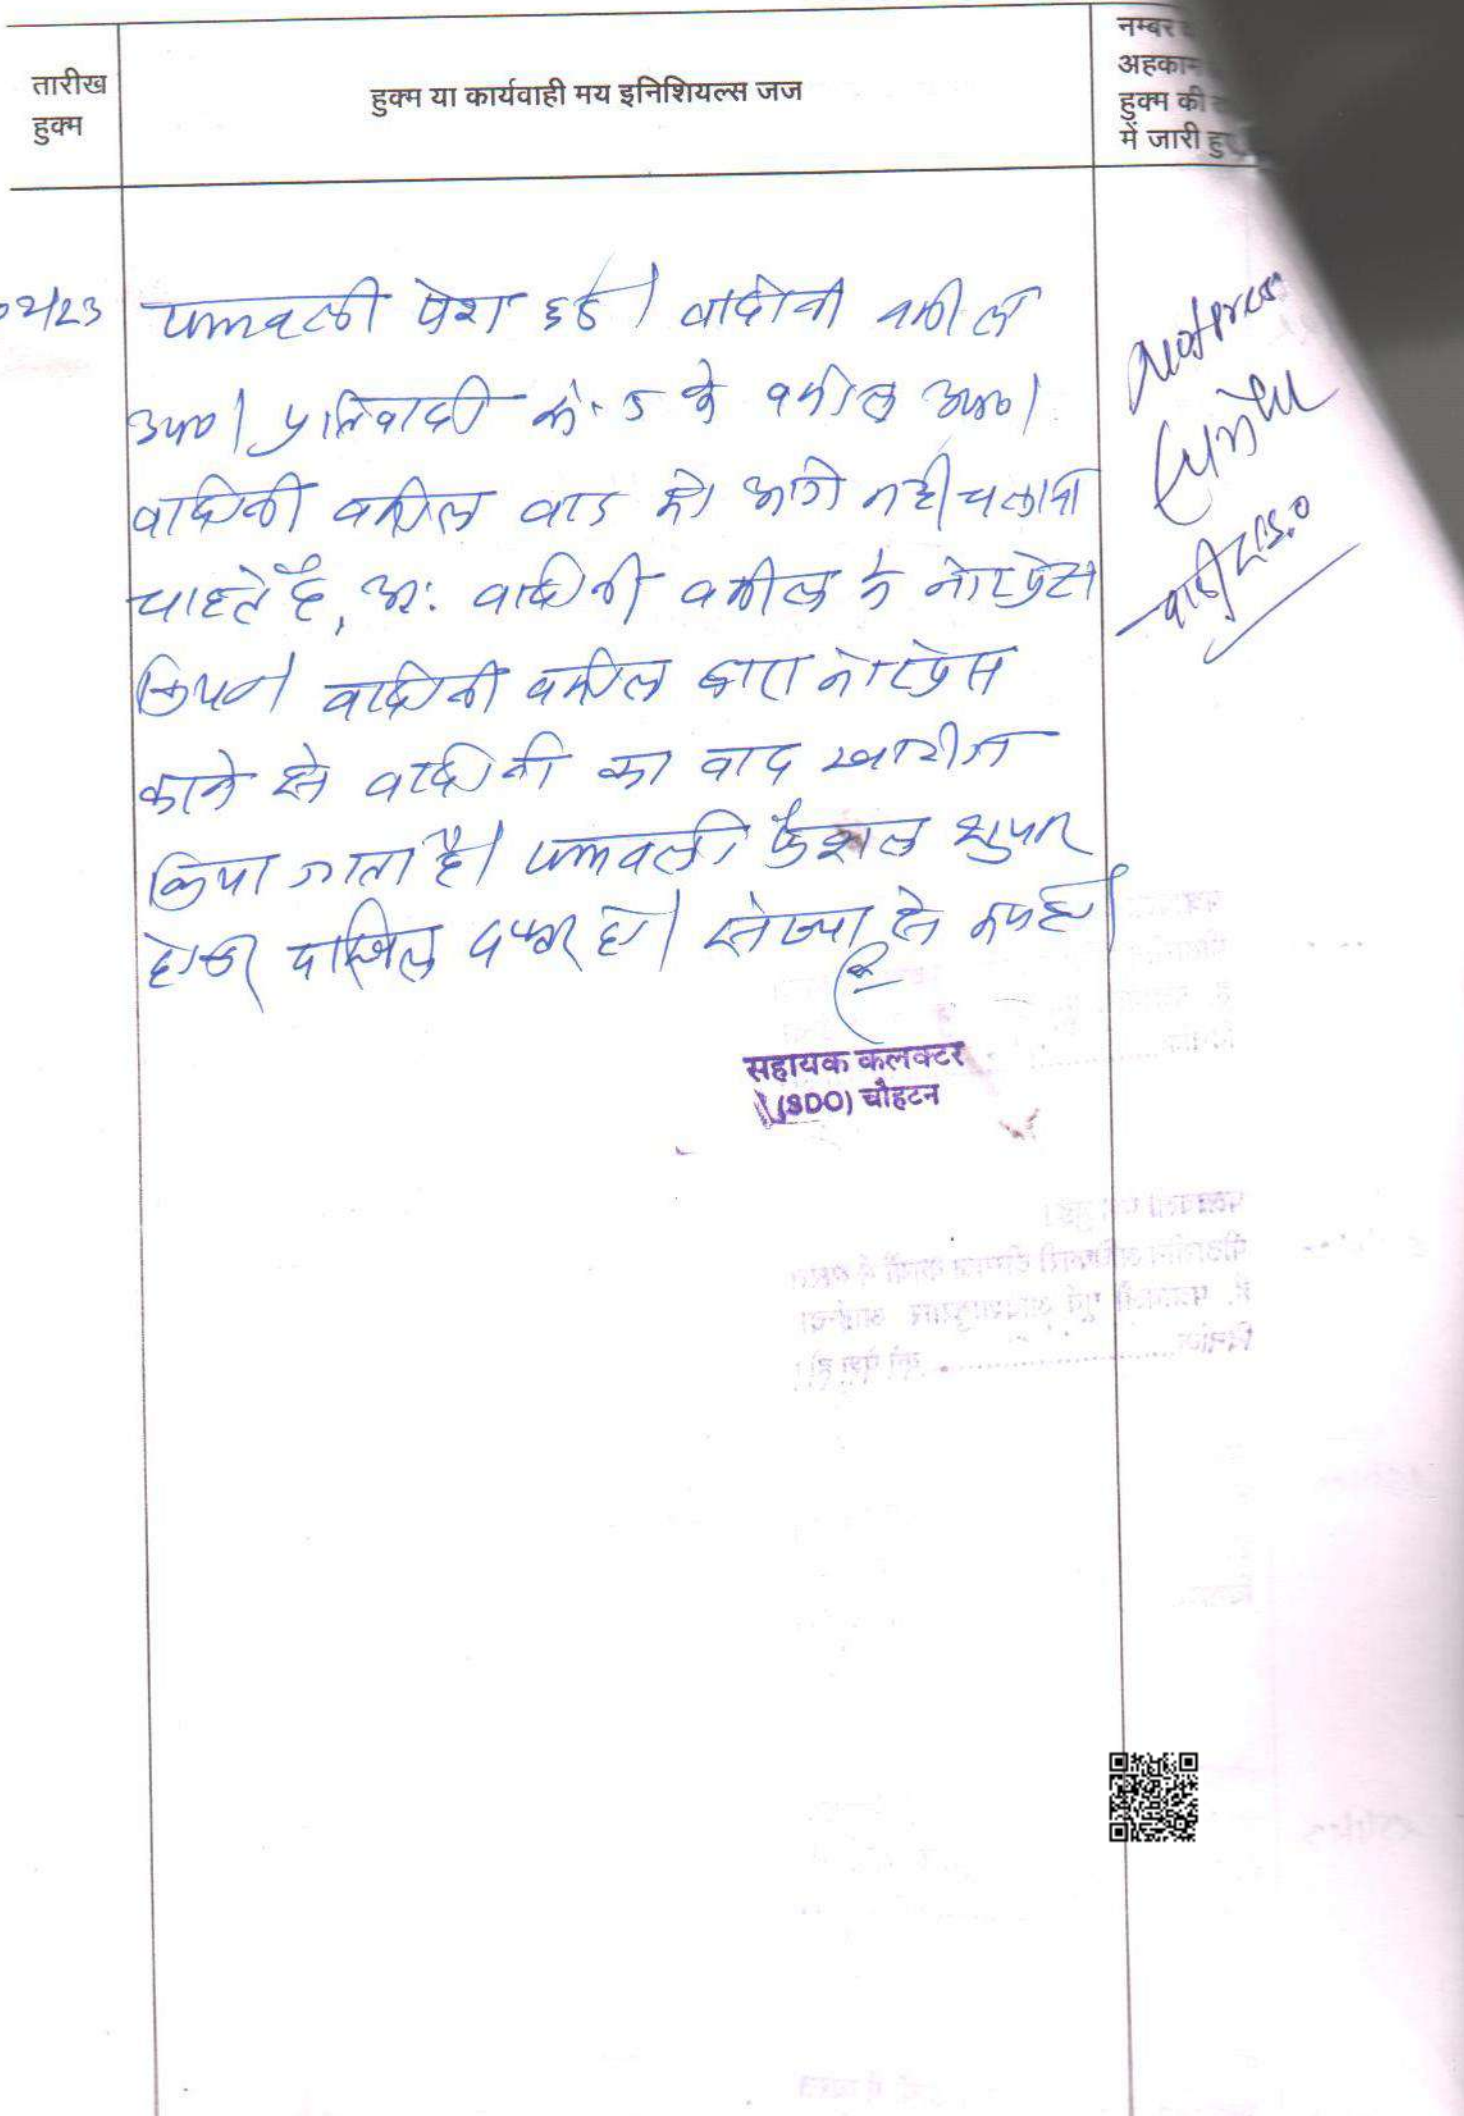 तारीख
हुक्म
हुक्म या कार्यवाही मय इनिशियल्स जज
नम्बर
अहकाम
हुक्म की
में जारी हुए
2/23
पत्रावली पेश हुई। वादीनी वकील
उप०। प्रतिवादी सं. 5 के वकील उप०।
वादिनी वकील वाद को आगे नही चलाना
चाहते है, अतः वादिनी वकील ने नोटप्रेस
किया। वादिनी वकील द्वारा नोटप्रेस
करने से वादिनी का वाद खारीज
किया जाता है। पत्रावली फैशल शुमार
होकर दाखिल दफ्तर हो। संख्या से कम हो।
सहायक कलक्टर
(SDO) चौहटन
Not press